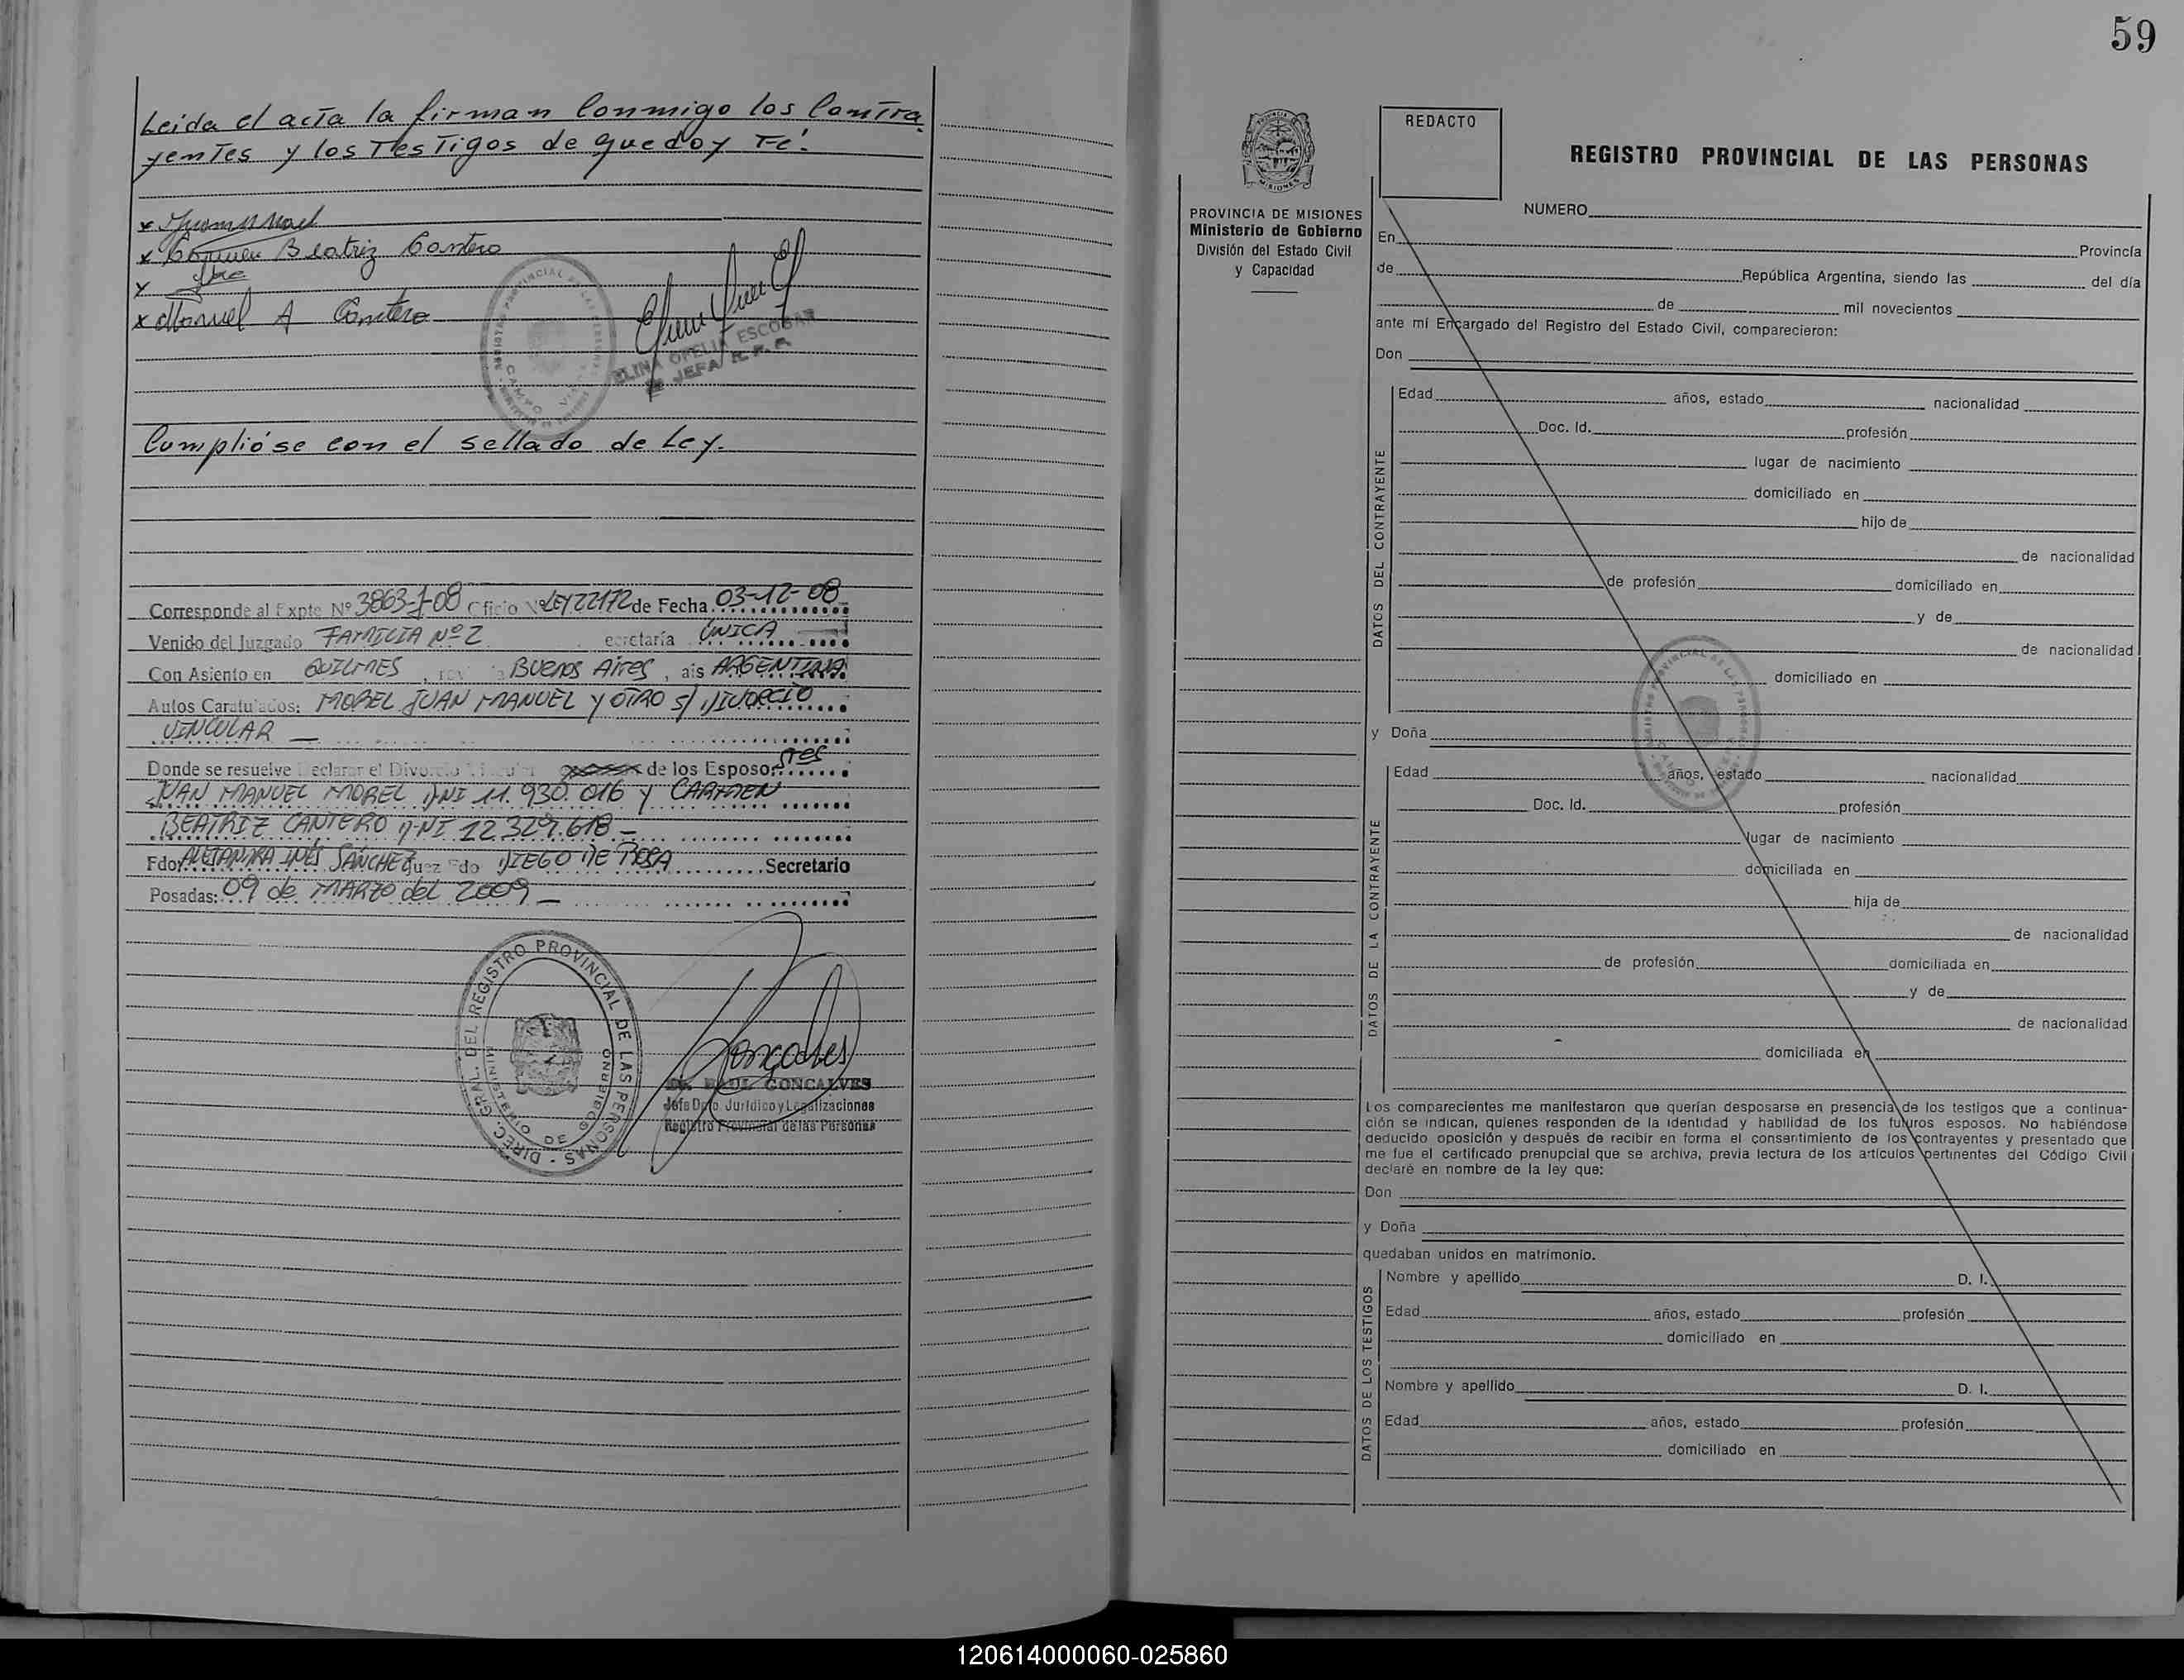 Leida el acta la firman Conmigo los Contra
yentes y los Testigos de que doy Fé.
x
x Carmen Beatriz Cantero
x
x Manuel A Cantero
REGISTRO PROVINCIAL DE LAS PERSONAS
CAMPO VIERA
ELINA OFELIA ESCOBAR
JEFA R.P.P.
Cumplióse con el sellado de Ley.
Corresponde al Expte Nº 3863-J-08 Oficio Nº LEY 22172 de Fecha 03-12-08
Venido del Juzgado FAMILIA Nº 2 ecretaría ÚNICA
Con Asiento en QUILMES, Buenos Aires, ais ARGENTINA
Autos Caratulados: MOREL JUAN MANUEL Y OTRO S/ DIVORCIO
VINCULAR —
Donde se resuelve Declarar el Divorcio Vincular de los Esposos: Sres
JUAN MANUEL MOREL DNI 11.930.016 Y CARMEN
BEATRIZ CANTERO DNI 12.329.618 —
Fdo: ALEJANDRA INÉS SÁNCHEZ Juez Fdo DIEGO DE ROSA Secretario
Posadas: 09 de MARZO del 2009 —
DIREC. GRAL. DEL REGISTRO PROVINCIAL DE LAS PERSONAS -
MINISTERIO DE GOBIERNO
Goncalves
Dr. RAUL GONCALVES
Jefe Dpto. Jurídico y Legalizaciones
Registro Provincial de las Personas
59
PROVINCIA DE MISIONES
Ministerio de Gobierno
División del Estado Civil
y Capacidad
REDACTO
REGISTRO PROVINCIAL DE LAS PERSONAS
NUMERO
En Provincia
de República Argentina, siendo las del día
de mil novecientos
ante mí Encargado del Registro del Estado Civil, comparecieron:
Don
DATOS DEL CONTRAYENTE
Edad años, estado nacionalidad
Doc. Id. profesión
lugar de nacimiento
domiciliado en
hijo de
de nacionalidad
de profesión domiciliado en
y de
de nacionalidad
domiciliado en
y Doña
DATOS DE LA CONTRAYENTE
Edad años, estado nacionalidad
Doc. Id. profesión
lugar de nacimiento
domiciliada en
hija de
de nacionalidad
de profesión domiciliada en
y de
de nacionalidad
domiciliada en
Los comparecientes me manifestaron que querían desposarse en presencia de los testigos que a continua-
ción se indican, quienes responden de la identidad y habilidad de los futuros esposos. No habiéndose
deducido oposición y después de recibir en forma el consentimiento de los contrayentes y presentado que
me fue el certificado prenupcial que se archiva, previa lectura de los artículos pertinentes del Código Civil
declaré en nombre de la ley que:
Don
y Doña
quedaban unidos en matrimonio.
DATOS DE LOS TESTIGOS
Nombre y apellido D. I.
Edad años, estado profesión
domiciliado en
Nombre y apellido D. I.
Edad años, estado profesión
domiciliado en
120614000060-025860